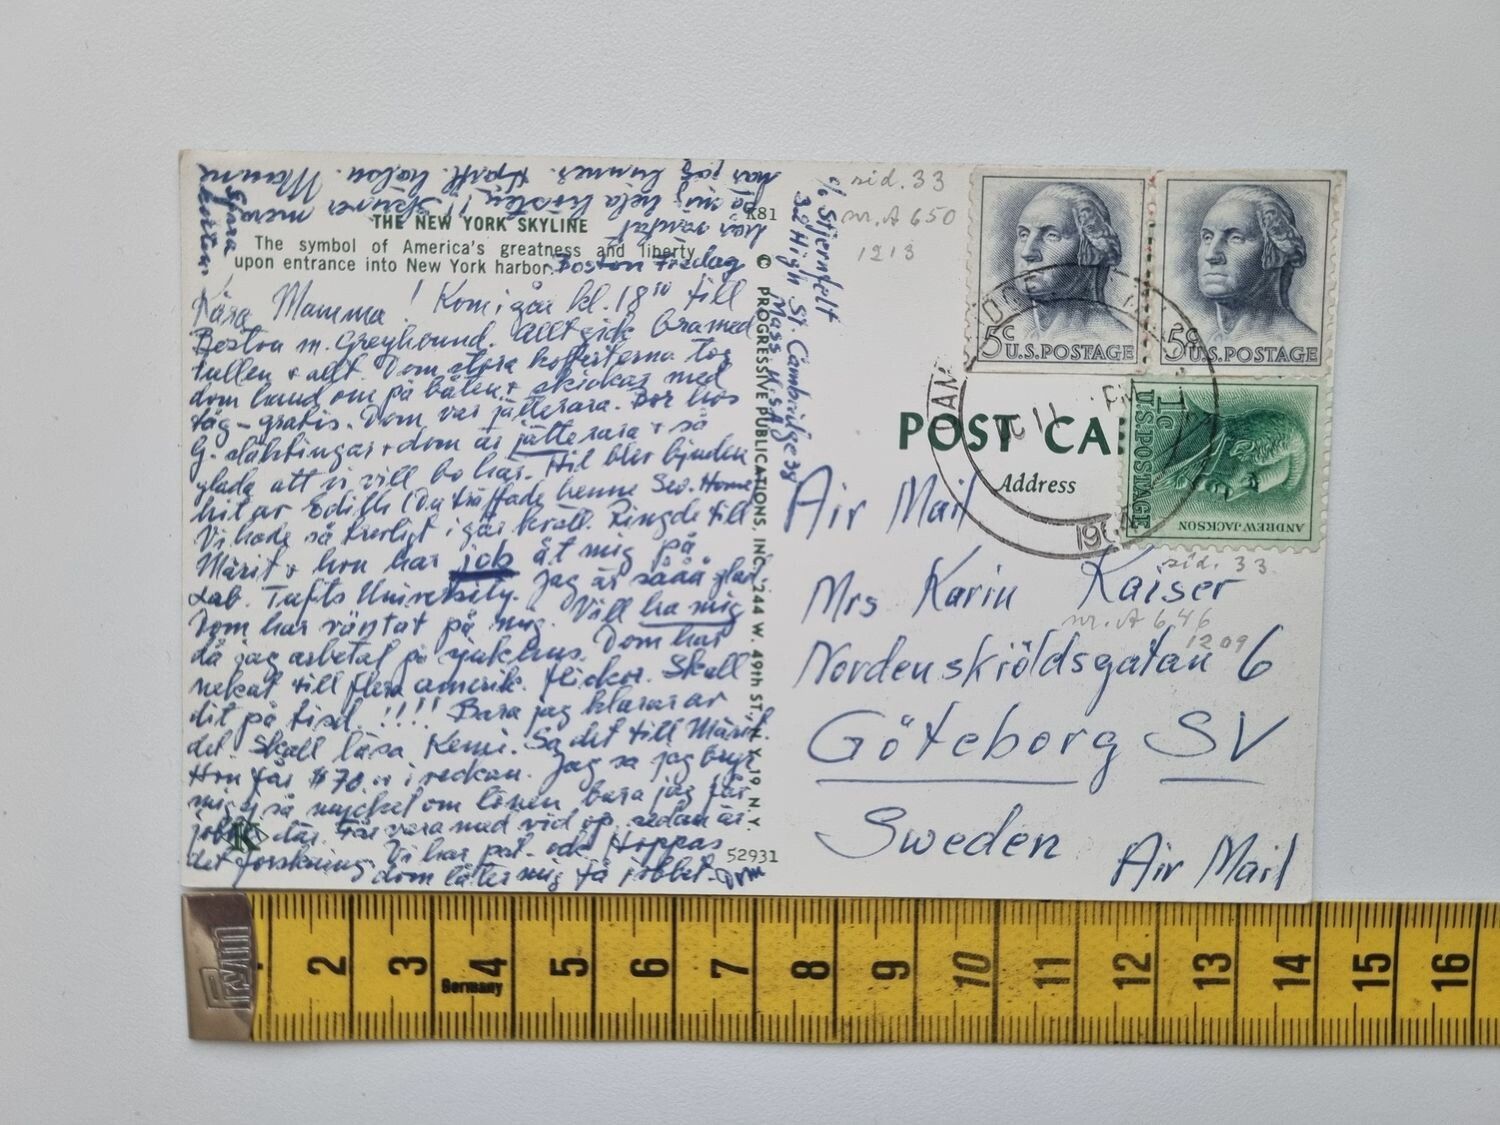 THE NEW YORK SKYLINE
The symbol of America's greatness and liberty
upon entrance into New York harbor.
K81
Boston Fredag
Kära Mamma! Kom igår kl. 18³⁰ till
Boston m. Greyhound. Allt gick bra med
tullen + allt. Dom stora kofferterna tog
dom hand om på båten + skickas med
tåg - gratis. Dom var jätterara. Bor hos
G. släktingar + dom är jätterara + så
glada att vi vill bo här. Hit blev bjuden
hit av Edith (Du träffade henne
Vi hade så trevligt igår kväll. Ringde till
Märit + hon har job åt mig på
Lab. Tufts University. Jag är sååå glad
Dom har väntat på mig. Vill ha mig
då jag arbetat på sjukhus. Dom har
nekat till flera amerik. flickor. Skall
dit på tisd. !!!! Bara jag klarar av
det. Skall läsa Kemi. Sa det till Märit
Hon får $70.. i veckan. Jag sa jag bryr
mig ej så mycket om lönen bara jag får
jobbet där. Får vara med vid op. sedan är
det forskning. Vi har pat. också. Hoppas
dom låter mig få jobbet. Dom
har väntat
på mig hela hösten! Skriver mera
när jag hinner. Hjärtl. hälsn. Manne
Spara
korten
© PROGRESSIVE PUBLICATIONS, INC. 244 W. 49th ST., N. Y. 19 N. Y.
52931
K
c/o Stjernfelt
32 High St. Cambridge 38
Mass. U.S.A.
sid. 33
nr. A 650
1213
5c
U.S. POSTAGE
5c
U.S. POSTAGE
1c
U.S. POSTAGE
ANDREW JACKSON
AM
11
PM
196
POST CA
Address
Air Mail
sid. 33
Mrs Karin Kaiser
nr. A 646
1209
Nordenskiöldsgatan 6
Göteborg SV
Sweden
Air Mail
2 3 4 5 6 7 8 9 10 11 12 13 14 15 16
Germany
Prym